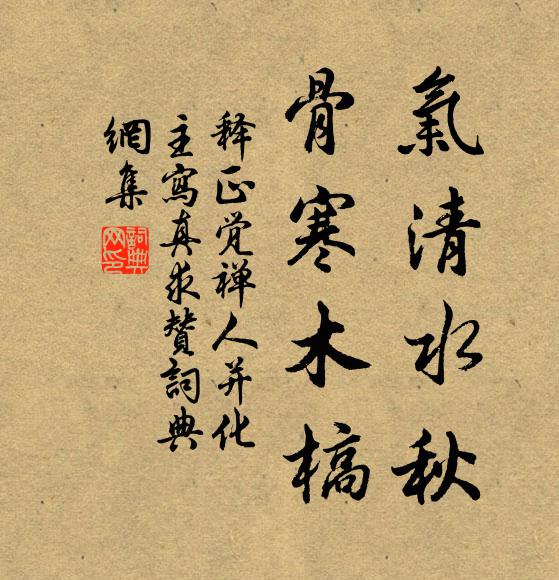 氣清水秋
骨寒木槁
释正觉禅人并化
主寫真求贊詞典
網集
詞典
网印